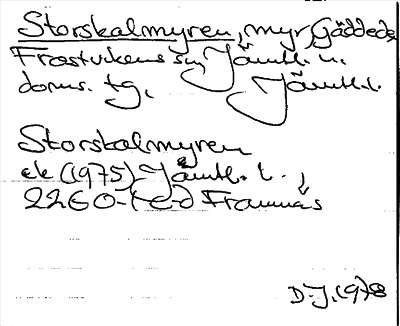 Storskalmyren, myr, Gäddede,
Frostvikens sn, Jämtl. n.
doms. tg, Jämtl. l.
Storskalmyren
ek (1975) Jämtl. l.,
22E0-c-d Framnäs
D.J. 1978